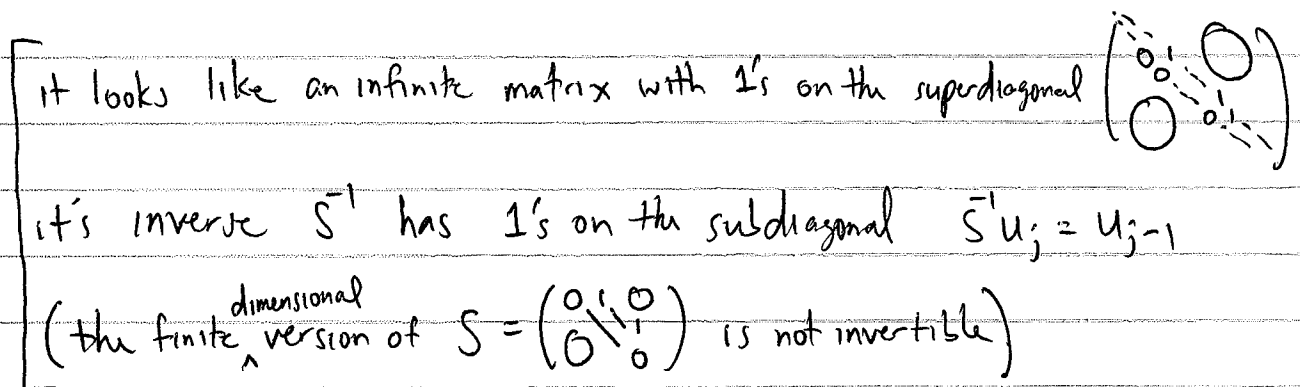 it looks like an infinite matrix with 1's on the superdiagonal $\begin{pmatrix} \ddots & \ddots & & & 0 \\ & 0 & 1 & & \\ & & 0 & \ddots & \\ & & & \ddots & 1 \\ 0 & & & & 0 \ddots \end{pmatrix}$
it's inverse $S^{-1}$ has 1's on the subdiagonal $S^{-1} u_j = u_{j-1}$
(the finite dimensional version of $S = \begin{pmatrix} 0 & 1 & & 0 \\ & \ddots & \ddots & \\ & & & 1 \\ 0 & & & 0 \end{pmatrix}$ is not invertible)